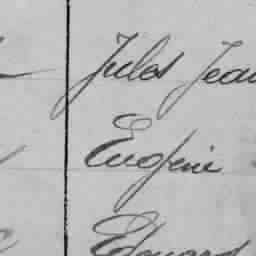 Jules Jean
Eugène
Edouard